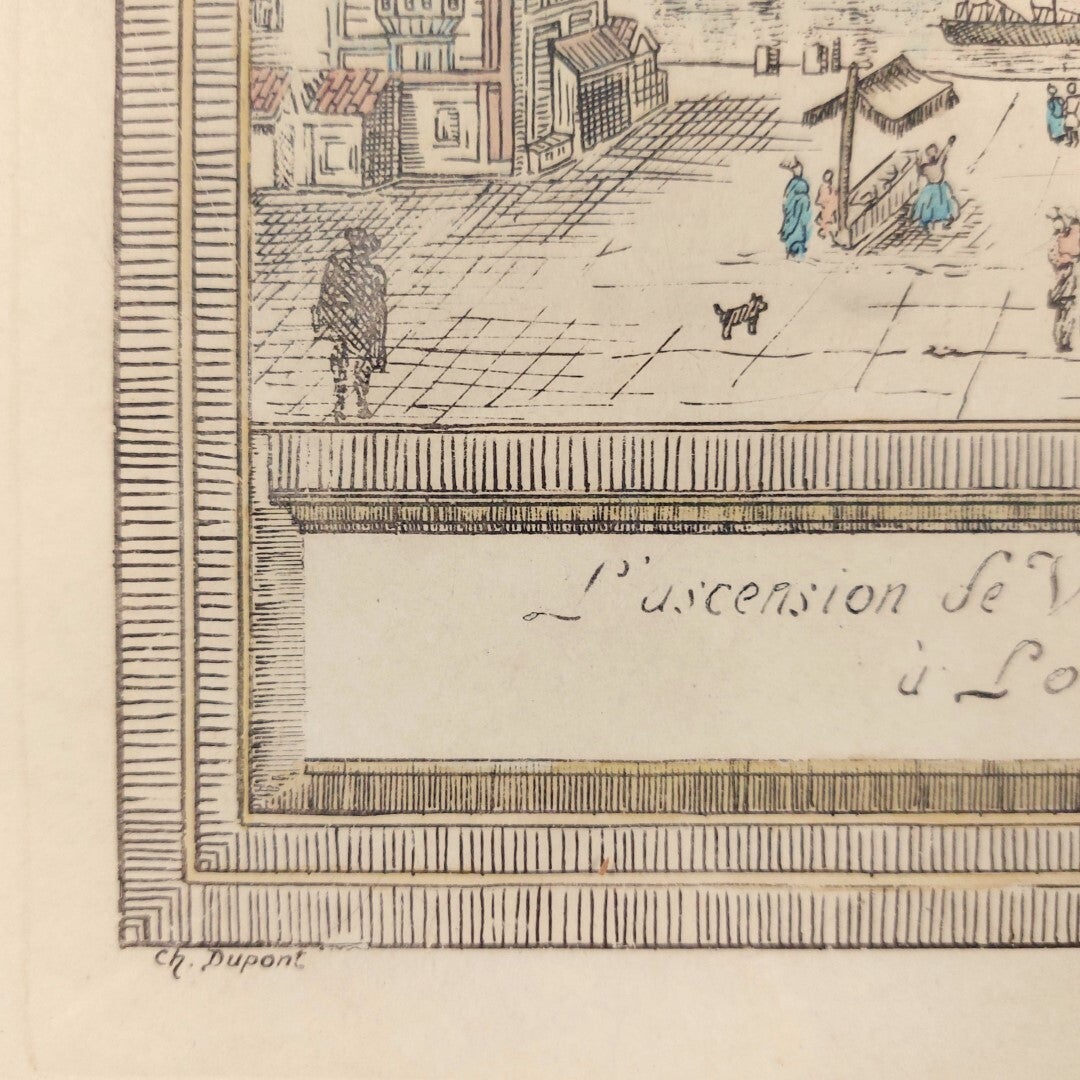 L'ascension de V
à Lo
Ch. Dupont